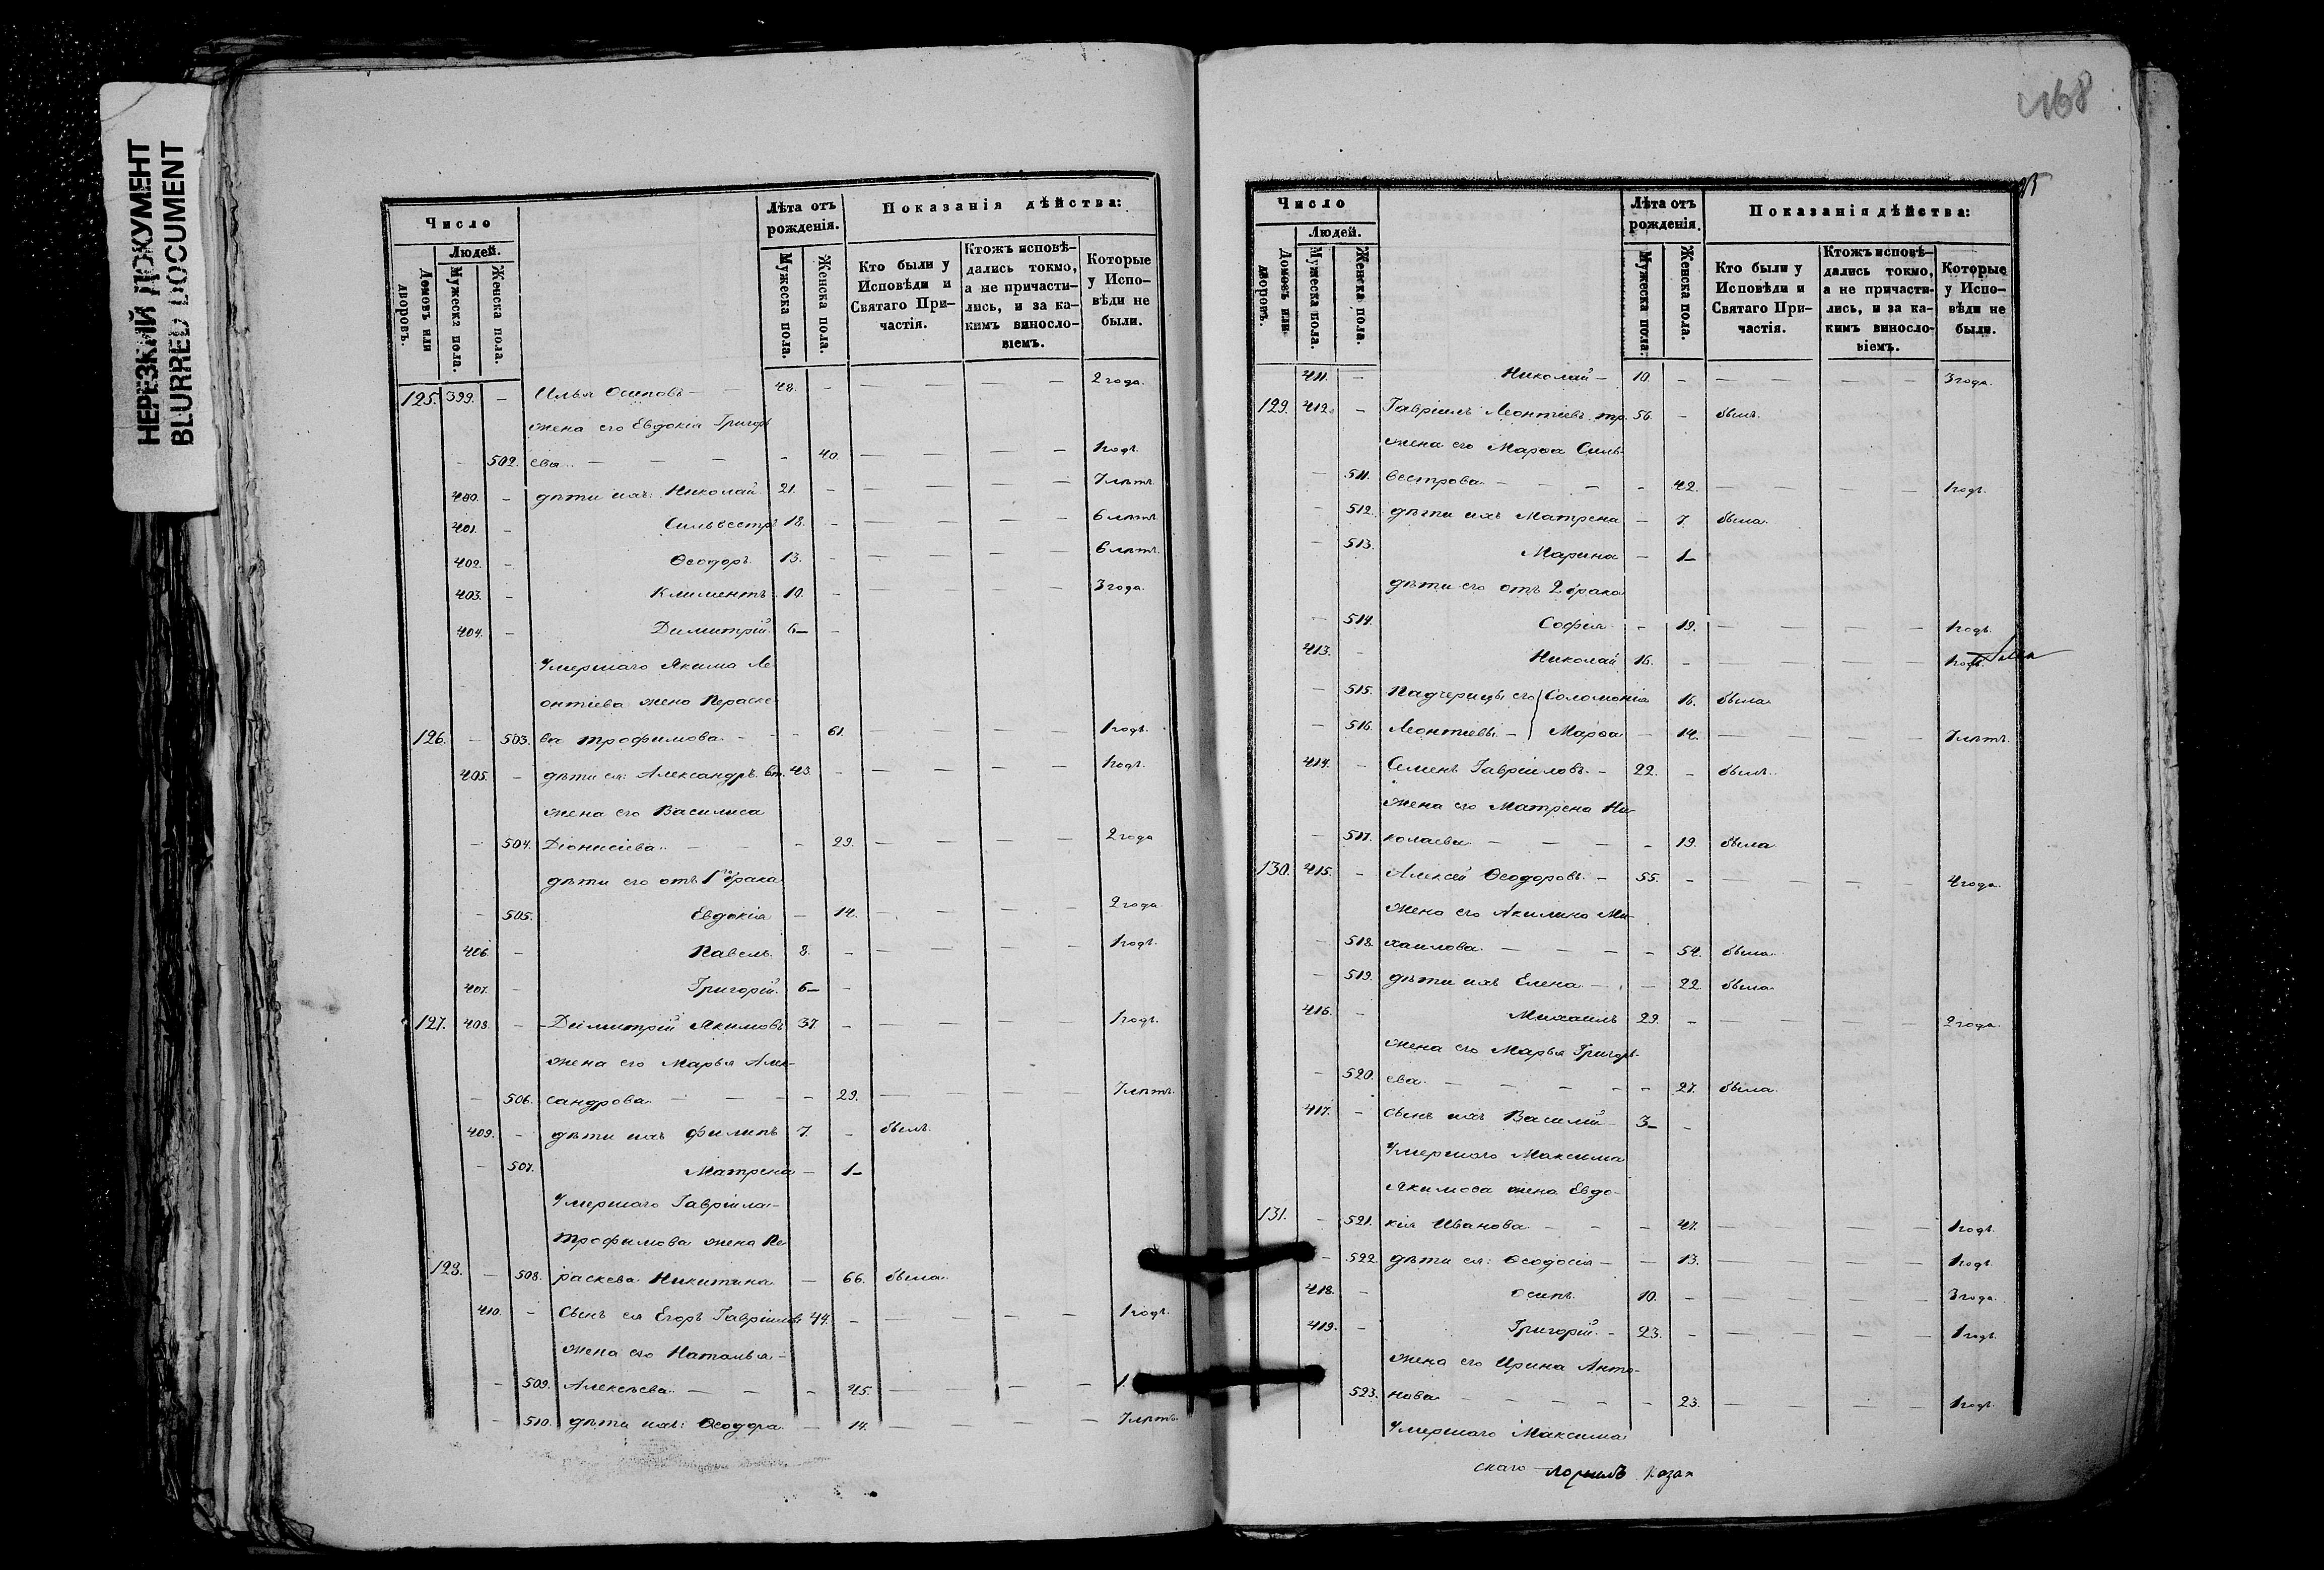 НЕРЕЗКИЙ ДОКУМЕНТ
BLURRED DOCUMENT
Число
Людей.
Домовъ или дворовъ.
Мужеска пола.
Женска пола.
Лѣта отъ рожденія.
Мужеска пола.
Женска пола.
Показанія дѣйства:
Кто были у Исповѣди и Святаго Причастія.
Ктожъ исповѣдались токмо, а не причастились, и за какимъ винословіемъ.
Которые у Исповѣди не были.
125. 399. – Илья Осиповъ – – 48. – – – – – 2 года.
жена его Евдокія Григорь
– 502. ева – – – – 40. – – – – 1 годъ.
400. – дѣти ихъ: Николай 21. – – – – – 7 лѣтъ.
401. – Сильвестръ 18. – – – – – 6 лѣтъ.
402. – Ѳеодоръ 13. – – – – – 6 лѣтъ.
403. – Климентъ 10. – – – – – 3 года.
404. – Димитрій 6 – –
Умершаго Якима Ле-
онтіева жена Параске-
126. – 503. ва Трофимова – – – 61. – – – – 1 годъ.
405. – дѣти ея: Александръ вт. 43. – – – – – 1 годъ.
жена его Василиса
– 504. Діонисіева – – – 29. – – – – 2 года
дѣти его отъ 1го брака
– 505. Евдокія – 14. – – – – 2 года
406. – Павелъ 8. – – – – – 1 годъ.
407. – Григорій 6 – –
127. 408. – Димитрій Якимовъ 37. – – – – – 1 годъ.
жена его Марья Алек-
– 506. сандрова – – – – 29. – – – – 7 лѣтъ.
409. – дѣти ихъ Филипъ 7. – былъ.
– 507. Матрена – 1 –
Умершаго Гавріила
Трофимова жена Па
128. – 508. раскева Никитина – 66. была.
410. – Сынъ ея Егоръ Гавріиловъ 44. – – – – – 1 годъ.
жена его Наталья –
– 509. Алексѣева – – – 45. – – – – 1
– 510. дѣти ихъ: Ѳеодора – 14. – – – – 7 лѣтъ.
468
Число
Людей.
Домовъ или дворовъ.
Мужеска пола.
Женска пола.
Лѣта отъ рожденія.
Мужеска пола.
Женска пола.
Показанія дѣйства:
Кто были у Исповѣди и Святаго Причастія.
Ктожъ исповѣдались токмо, а не причастились, и за какимъ винословіемъ.
Которые у Исповѣди не были.
411. – Николай – 10. – – – – – 3 года.
129. 412. – Гавріилъ Леонтіевъ тр. 56. – былъ.
жена его Марѳа Силь-
– 511. вестрова – – – – 42. – – – – 1 годъ.
– 512. дѣти ихъ Матрена – 7. была.
– 513. Марина – 1 –
дѣти его отъ 2 брака
– 514. Софія – – 19. – – – – 1 годъ.
413. – Николай 16. – – – – – 1 годъ.
– 515. Падчерицы его Соломонія 16. была.
– 516. Леонтіевы – Марѳа – 14. – – – – 7 лѣтъ.
414. – Семенъ Гавріиловъ – 22. – былъ.
жена его Матрена Ни-
– 517. колаева – – – – 19. была
130. 415. – Алексѣй Ѳеодоровъ – 55. – – – – – 4 года.
жена его Акилина Ми-
– 518. хаилова – – – – 54. была.
– 519. дѣти ихъ Елена – – 22. была.
416. – Михаилъ 29. – – – – – 2 года.
жена его Марья Григорь-
– 520. ева – – – – – 27. была.
417. – Сынъ ихъ Василій 3 – –
Умершаго Максима
Якимова жена Евдо-
131. – 521. кія Иванова – – – 47. – – – – 1 годъ.
– 522. дѣти ея: Ѳеодосія – – 13. – – – – 1 годъ.
418. – Осипъ 10. – – – – – 3 года.
419. – Григорій – 23. – – – – – 1 годъ.
жена его Ирина Анто-
523. нова – – – – – 23. – – – – 1 годъ.
Умершаго Максима
скаго